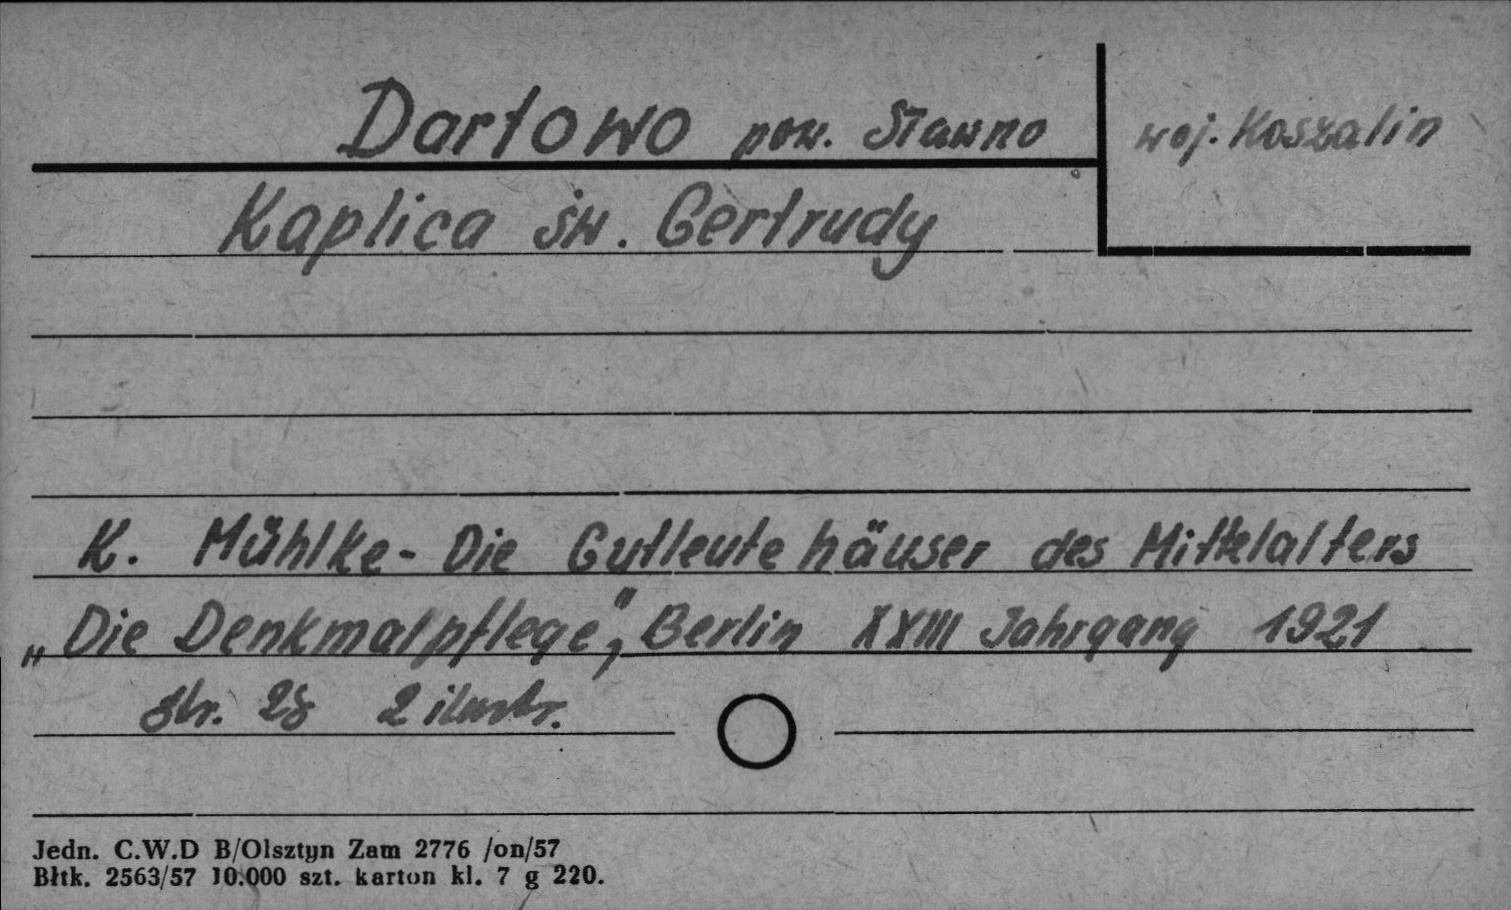 Darłowo pow. Sławno
woj. Koszalin
Kaplica św. Gertrudy
K. Mühlke - Die Gutleutehäuser des Mittelalters
„Die Denkmalpflege", Berlin XXIII Jahrgang 1921
str. 28 2 ilustr.
Jedn. C.W.D B/Olsztyn Zam 2776 /on/57
Błtk. 2563/57 10.000 szt. karton kl. 7 g 220.